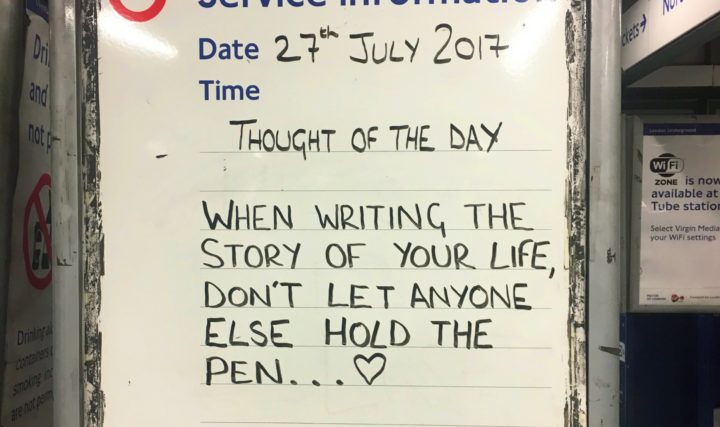 Service Information
Date 27th JULY 2017
Time
THOUGHT OF THE DAY
WHEN WRITING THE
STORY OF YOUR LIFE,
DON'T LET ANYONE
ELSE HOLD THE
PEN...♡
and
not
Drinking
containers
smoking
are not
London Underground
WiFi
ZONE is now
available at
Tube station
Select Virgin Media
your WiFi settings